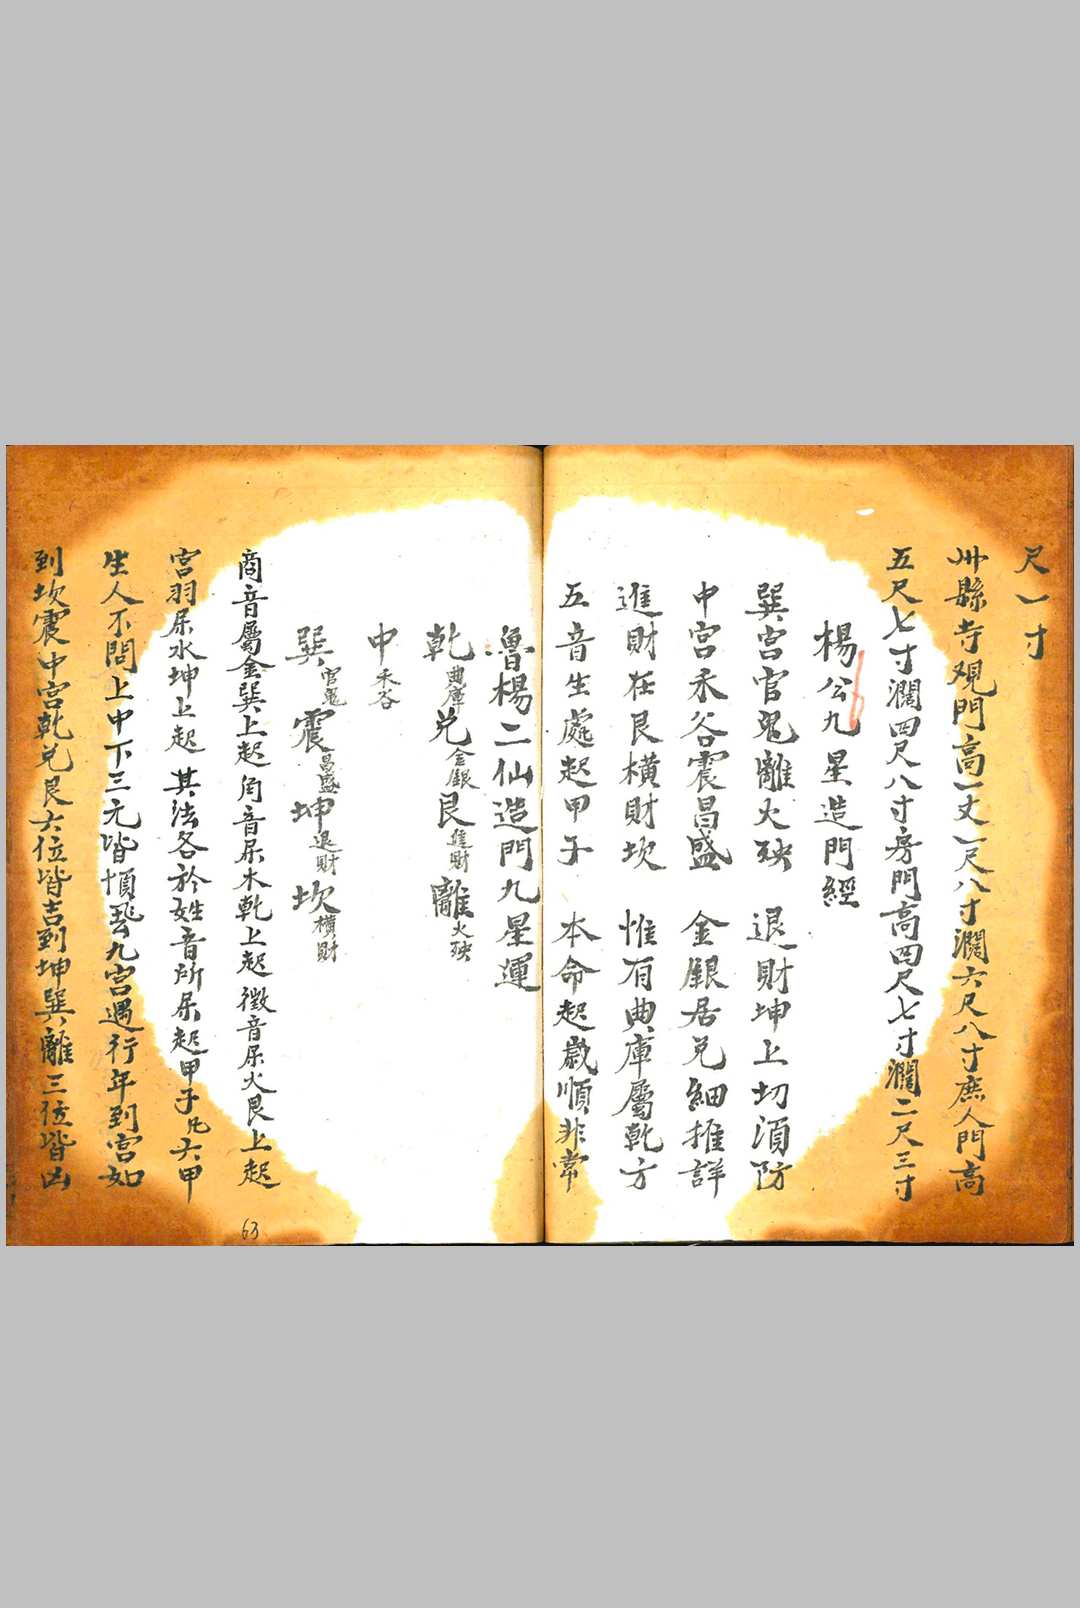 尺一寸
州縣寺观門高一丈一尺八寸濶六尺八寸庶人門高
五尺七寸濶四尺八寸房門高四尺七寸濶二尺三寸
楊公九星造門經
巽宫官鬼離火殃 退財坤上切須防
中宫禾谷震昌盛 金銀居兌細推詳
進財在艮橫財坎 惟有典庫屬乾方
五音生處起甲子 本命起歲順非常
魯楊二仙造門九星運
乾典庫兌金銀艮進財離火殃
中禾谷
巽官鬼震昌盛坤退財坎橫財
商音屬金巽上起角音屌木乾上起徵音屌火艮上起
宫羽屌水坤上起其法各於姓音所屌起甲子凢六甲
生人不問上中下三元皆順飛九宫遇行年到宫如
到坎震中宫乾兌艮六位皆吉到坤巽離三位皆凶
63